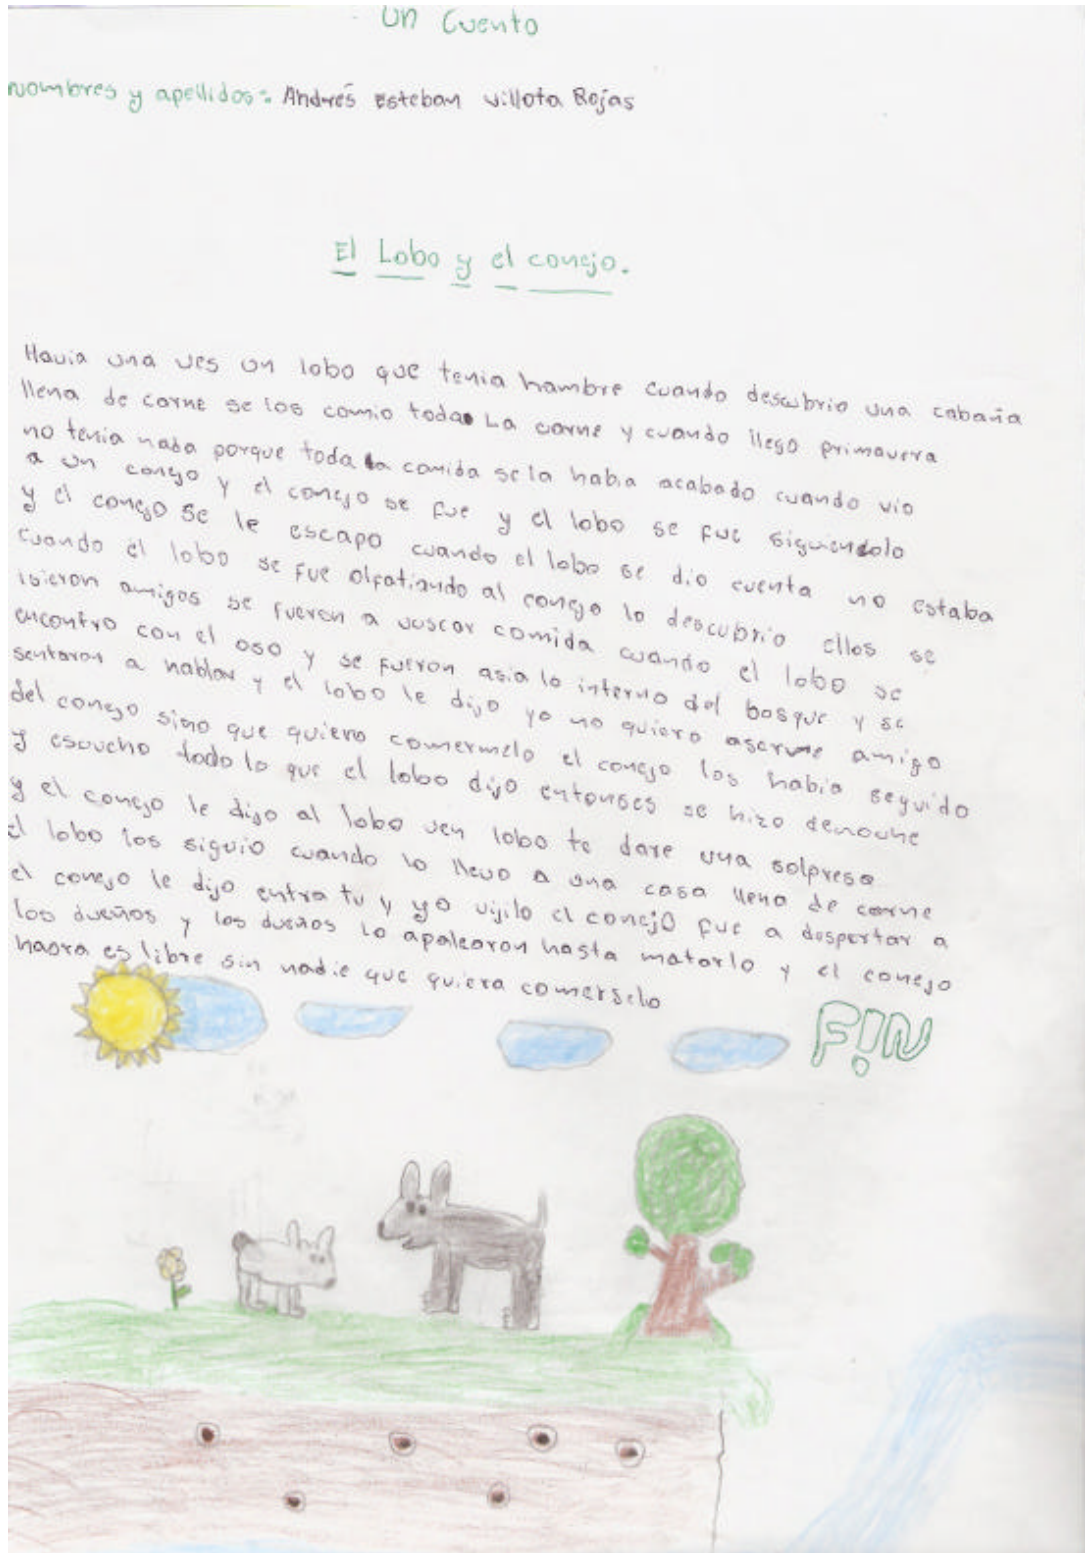 Un Cuento
Nombres y apellidos: Andrés Esteban Villota Rojas
El Lobo y el conejo.
Havia una ves un lobo que tenia hambre cuando descubrio una cabaña
llena de carne se los comio toda La carne y cuando llego primavera
no tenia nada porque toda la comida se la habia acabado cuando vio
a un conejo y el conejo se fue y el lobo se fue siguiendolo
y el conejo se le escapo cuando el lobo se dio cuenta no estaba
cuando el lobo se fue olfatiando al conejo lo descubrio ellos se
isieron amigos se fueron a vuscar comida cuando el lobo se
encontro con el oso y se fueron asia lo interno del bosque y se
sentaron a hablar y el lobo le dijo yo no quiero aserme amigo
del conejo sino que quiero comermelo el conejo los habia seguido
y escucho todo lo que el lobo dijo entonses se hizo denoche
y el conejo le dijo al lobo ven lobo te dare una solpresa
el lobo los siguio cuando lo llevo a una casa llena de carne
el conejo le dijo entra tu y yo vijilo el conejo fue a despertar a
los dueños y los dueños lo apalearon hasta matarlo y el conejo
haora es libre sin nadie que quiera comerselo
FIN